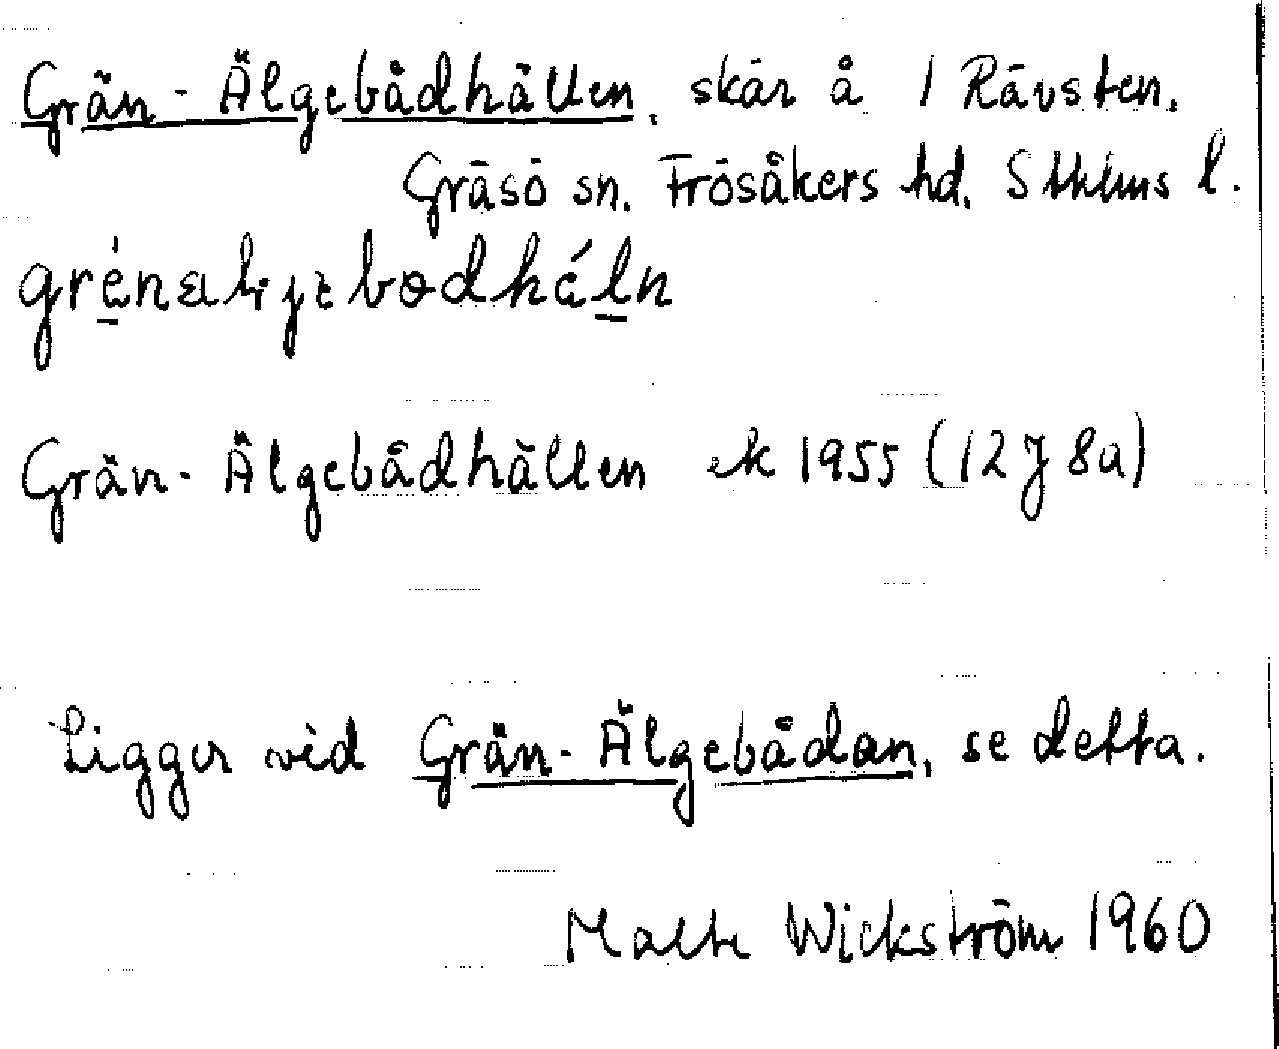 Grän-Älgebådhällen, skär å 1 Rävsten.
Gräsö sn. Frösåkers hd. Sthlms l.
Grän-Älgebådhällen ek 1955 (12J 8a)
Ligger vid Grän-Älgebådan, se detta.
Malte Wickström 1960